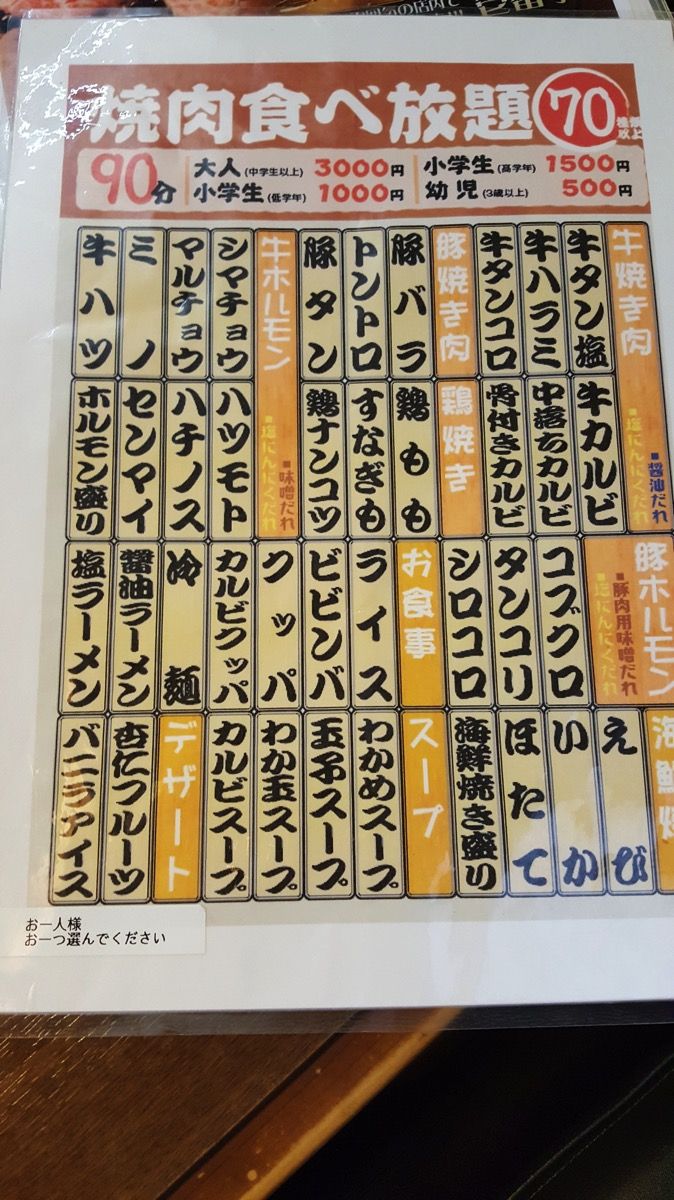 焼肉食べ放題
70
種類
以上
90分
大人(中学生以上) 3000円
小学生(高学年) 1500円
小学生(低学年) 1000円
幼児(3歳以上) 500円
牛焼き肉
■醤油だれ
■塩にんにくだれ
牛タン塩
牛ハラミ
牛タンコロ
豚焼き肉
豚バラ
トントロ
豚タン
牛ホルモン
■味噌だれ
■塩にんにくだれ
シマチョウ
マルチョウ
ミノ
牛ハツ
牛カルビ
中落ちカルビ
骨付きカルビ
鶏焼き
鶏もも
すなぎも
鶏ナンコツ
ハツモト
ハチノス
センマイ
ホルモン盛り
豚ホルモン
■豚肉用味噌だれ
■塩にんにくだれ
コブクロ
タンコリ
シロコロ
お食事
ライス
ビビンバ
クッパ
カルビクッパ
冷麺
醤油ラーメン
塩ラーメン
海鮮焼
えび
いか
ほたて
海鮮焼き盛り
スープ
わかめスープ
玉子スープ
わか玉スープ
カルビスープ
デザート
杏仁フルーツ
バニラアイス
お一人様
お一つ選んでください